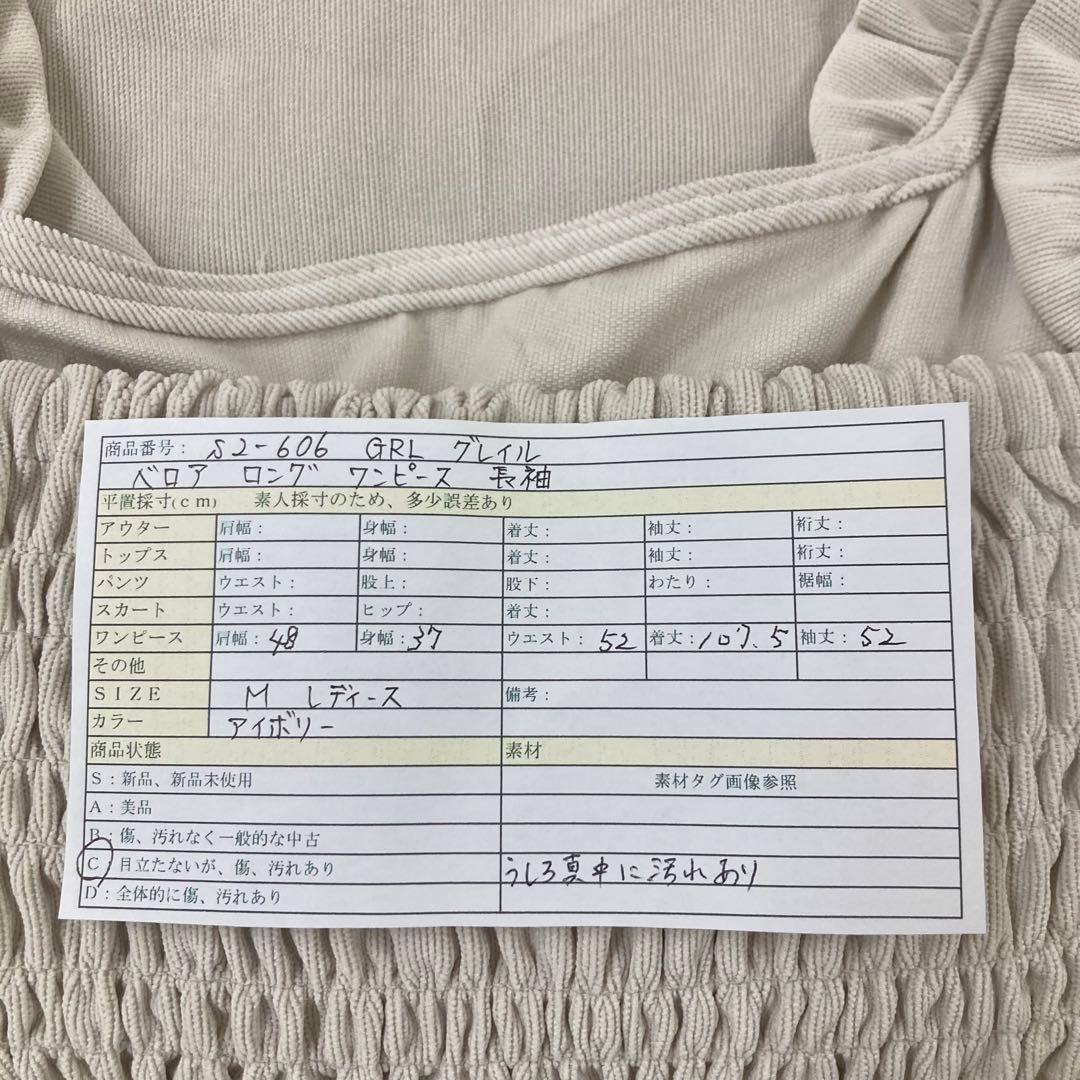 商品番号： S2-606 GRL グレイル
ベロア ロング ワンピース 長袖
平置採寸(cm) 素人採寸のため、多少誤差あり
アウター 肩幅： 身幅： 着丈： 袖丈： 裄丈：
トップス 肩幅： 身幅： 着丈： 袖丈： 裄丈：
パンツ ウエスト： 股上： 股下： わたり： 裾幅：
スカート ウエスト： ヒップ： 着丈：
ワンピース 肩幅：48 身幅：37 ウエスト：52 着丈：107.5 袖丈：52
その他
SIZE M レディース 備考：
カラー アイボリー
商品状態 素材
S：新品、新品未使用 素材タグ画像参照
A：美品
B：傷、汚れなく一般的な中古
C 目立たないが、傷、汚れあり うしろ真中に汚れあり
D：全体的に傷、汚れあり